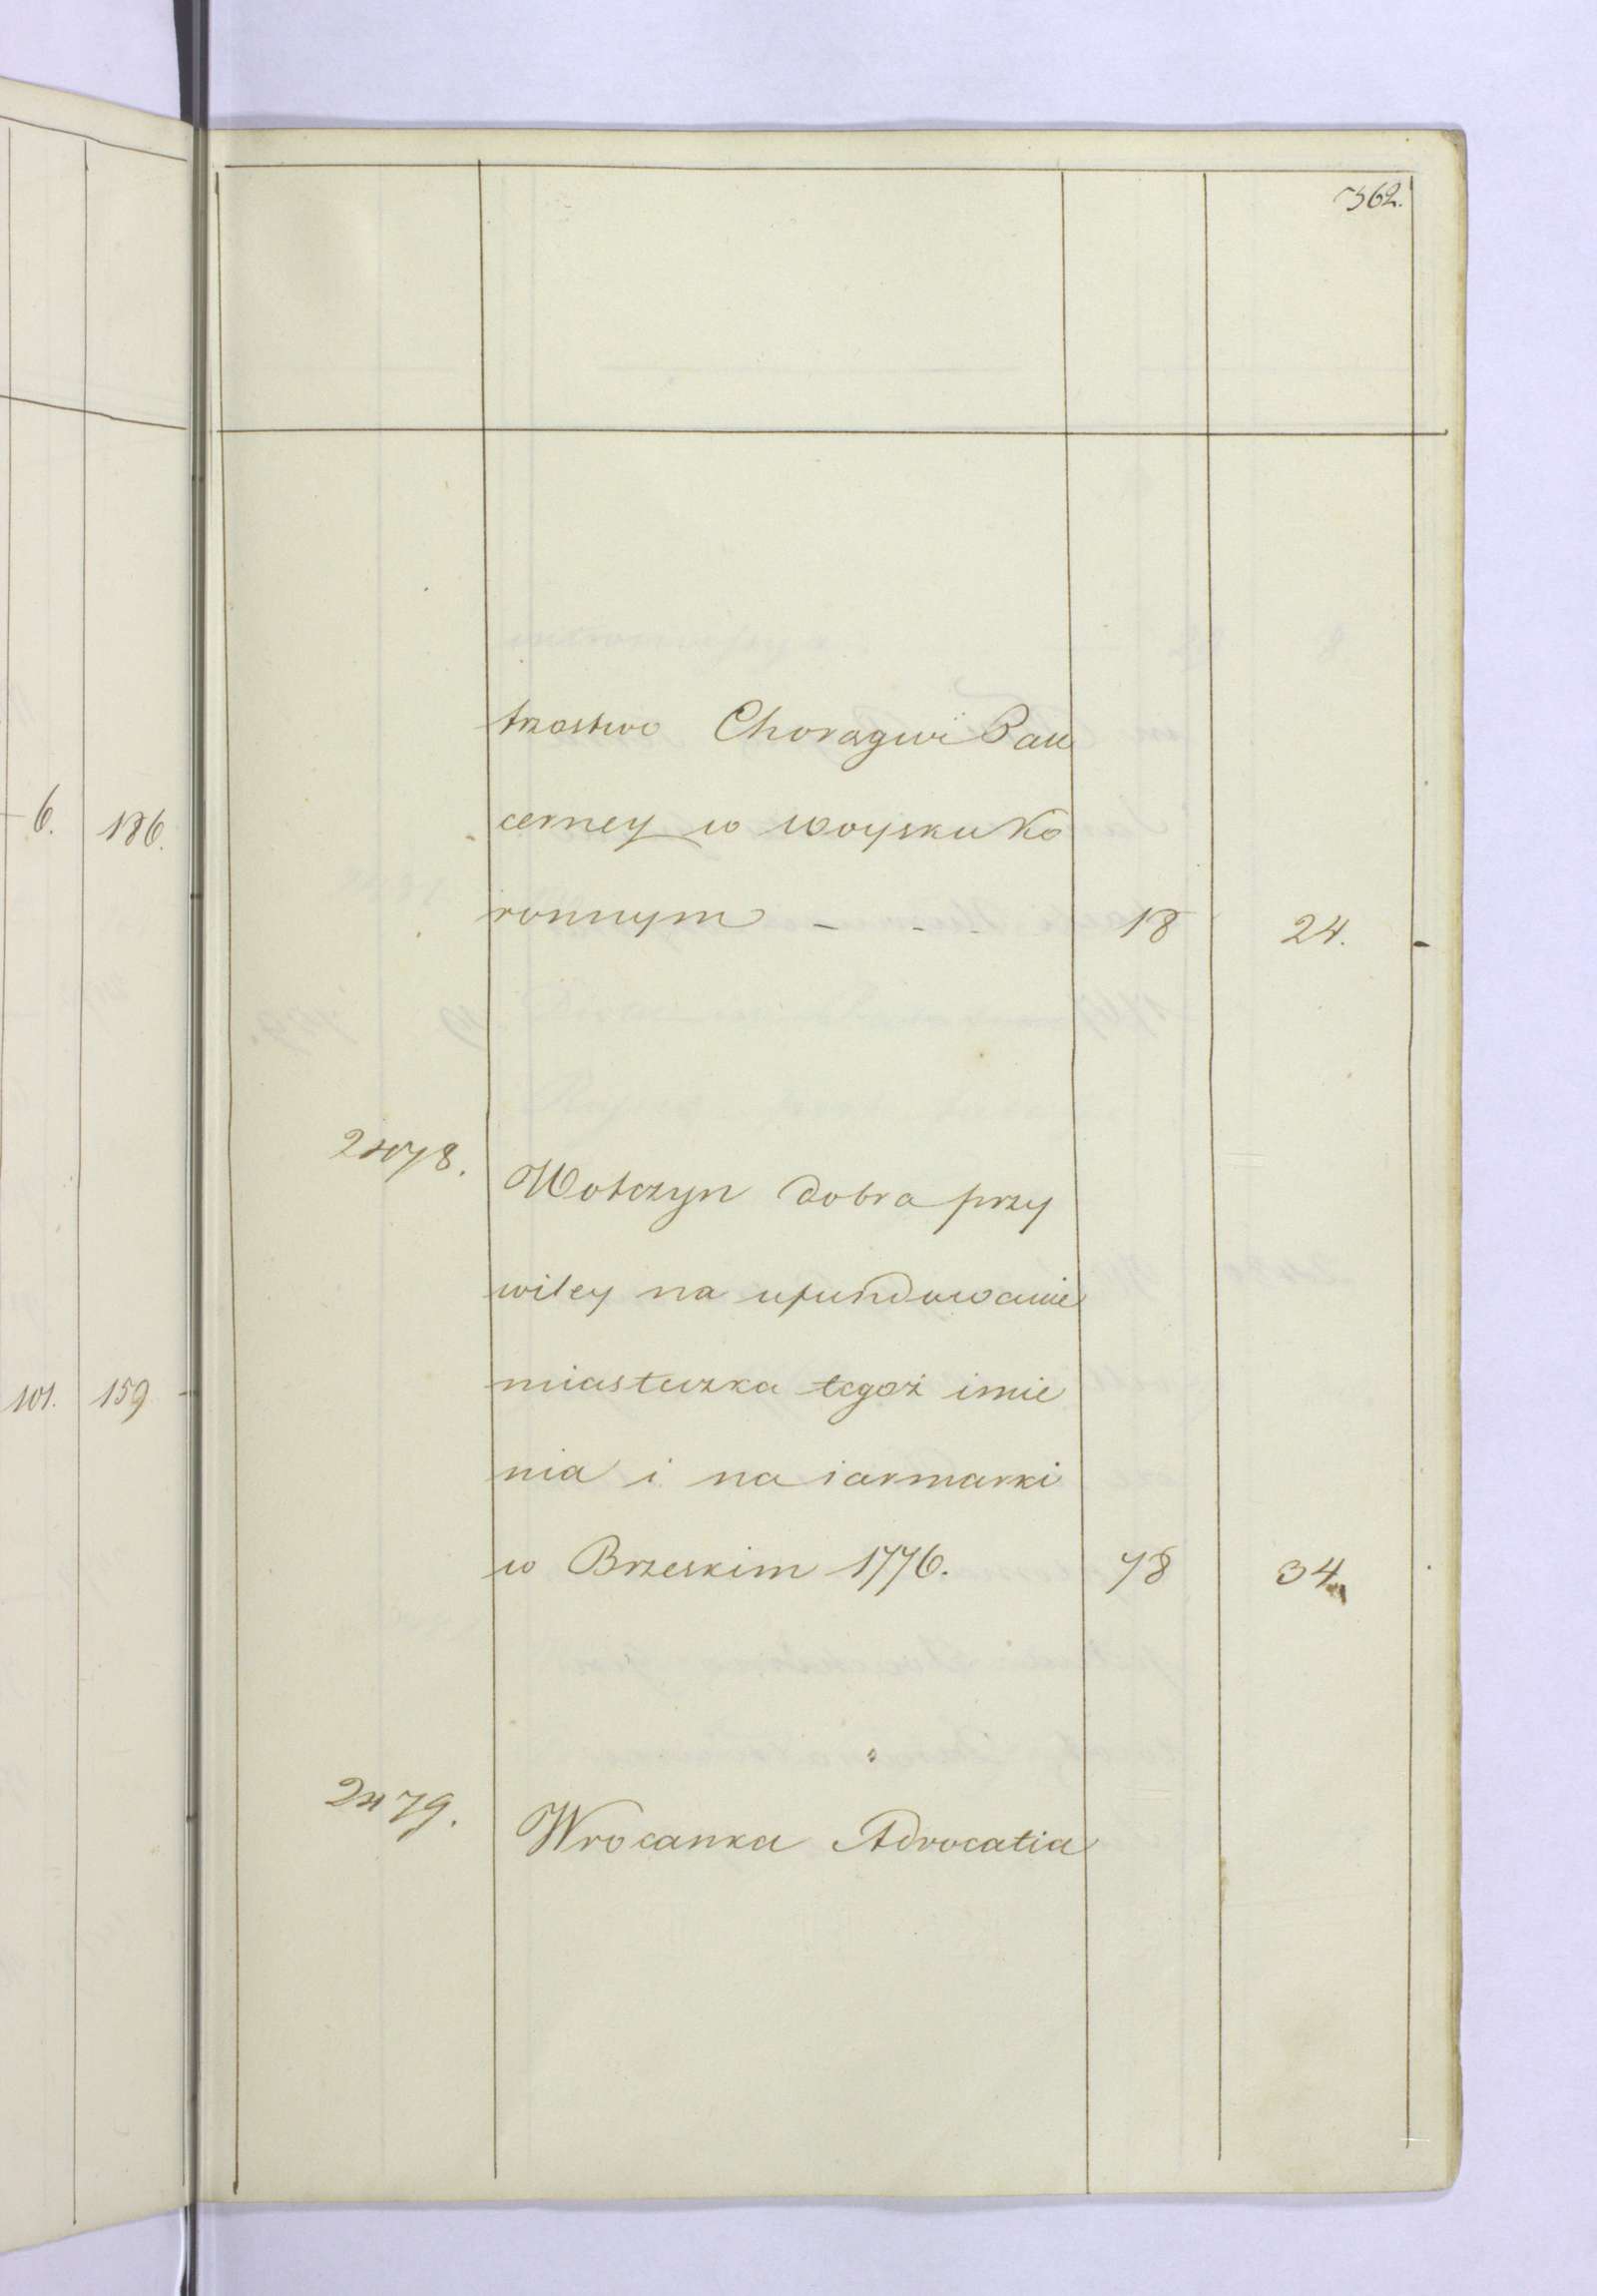 362.
trzostwo Choragwi Pan
cerney w woysku Ko
ronnym - - - 18 24.
6. 186.
2478. Wotczyn dobra przy
wiley na ufundowanie
miasteczka tegoż imie
101. 159
nia i na iarmarki
w Brzeskim 1776. 78 34
2479. Wrocanka Advocatia